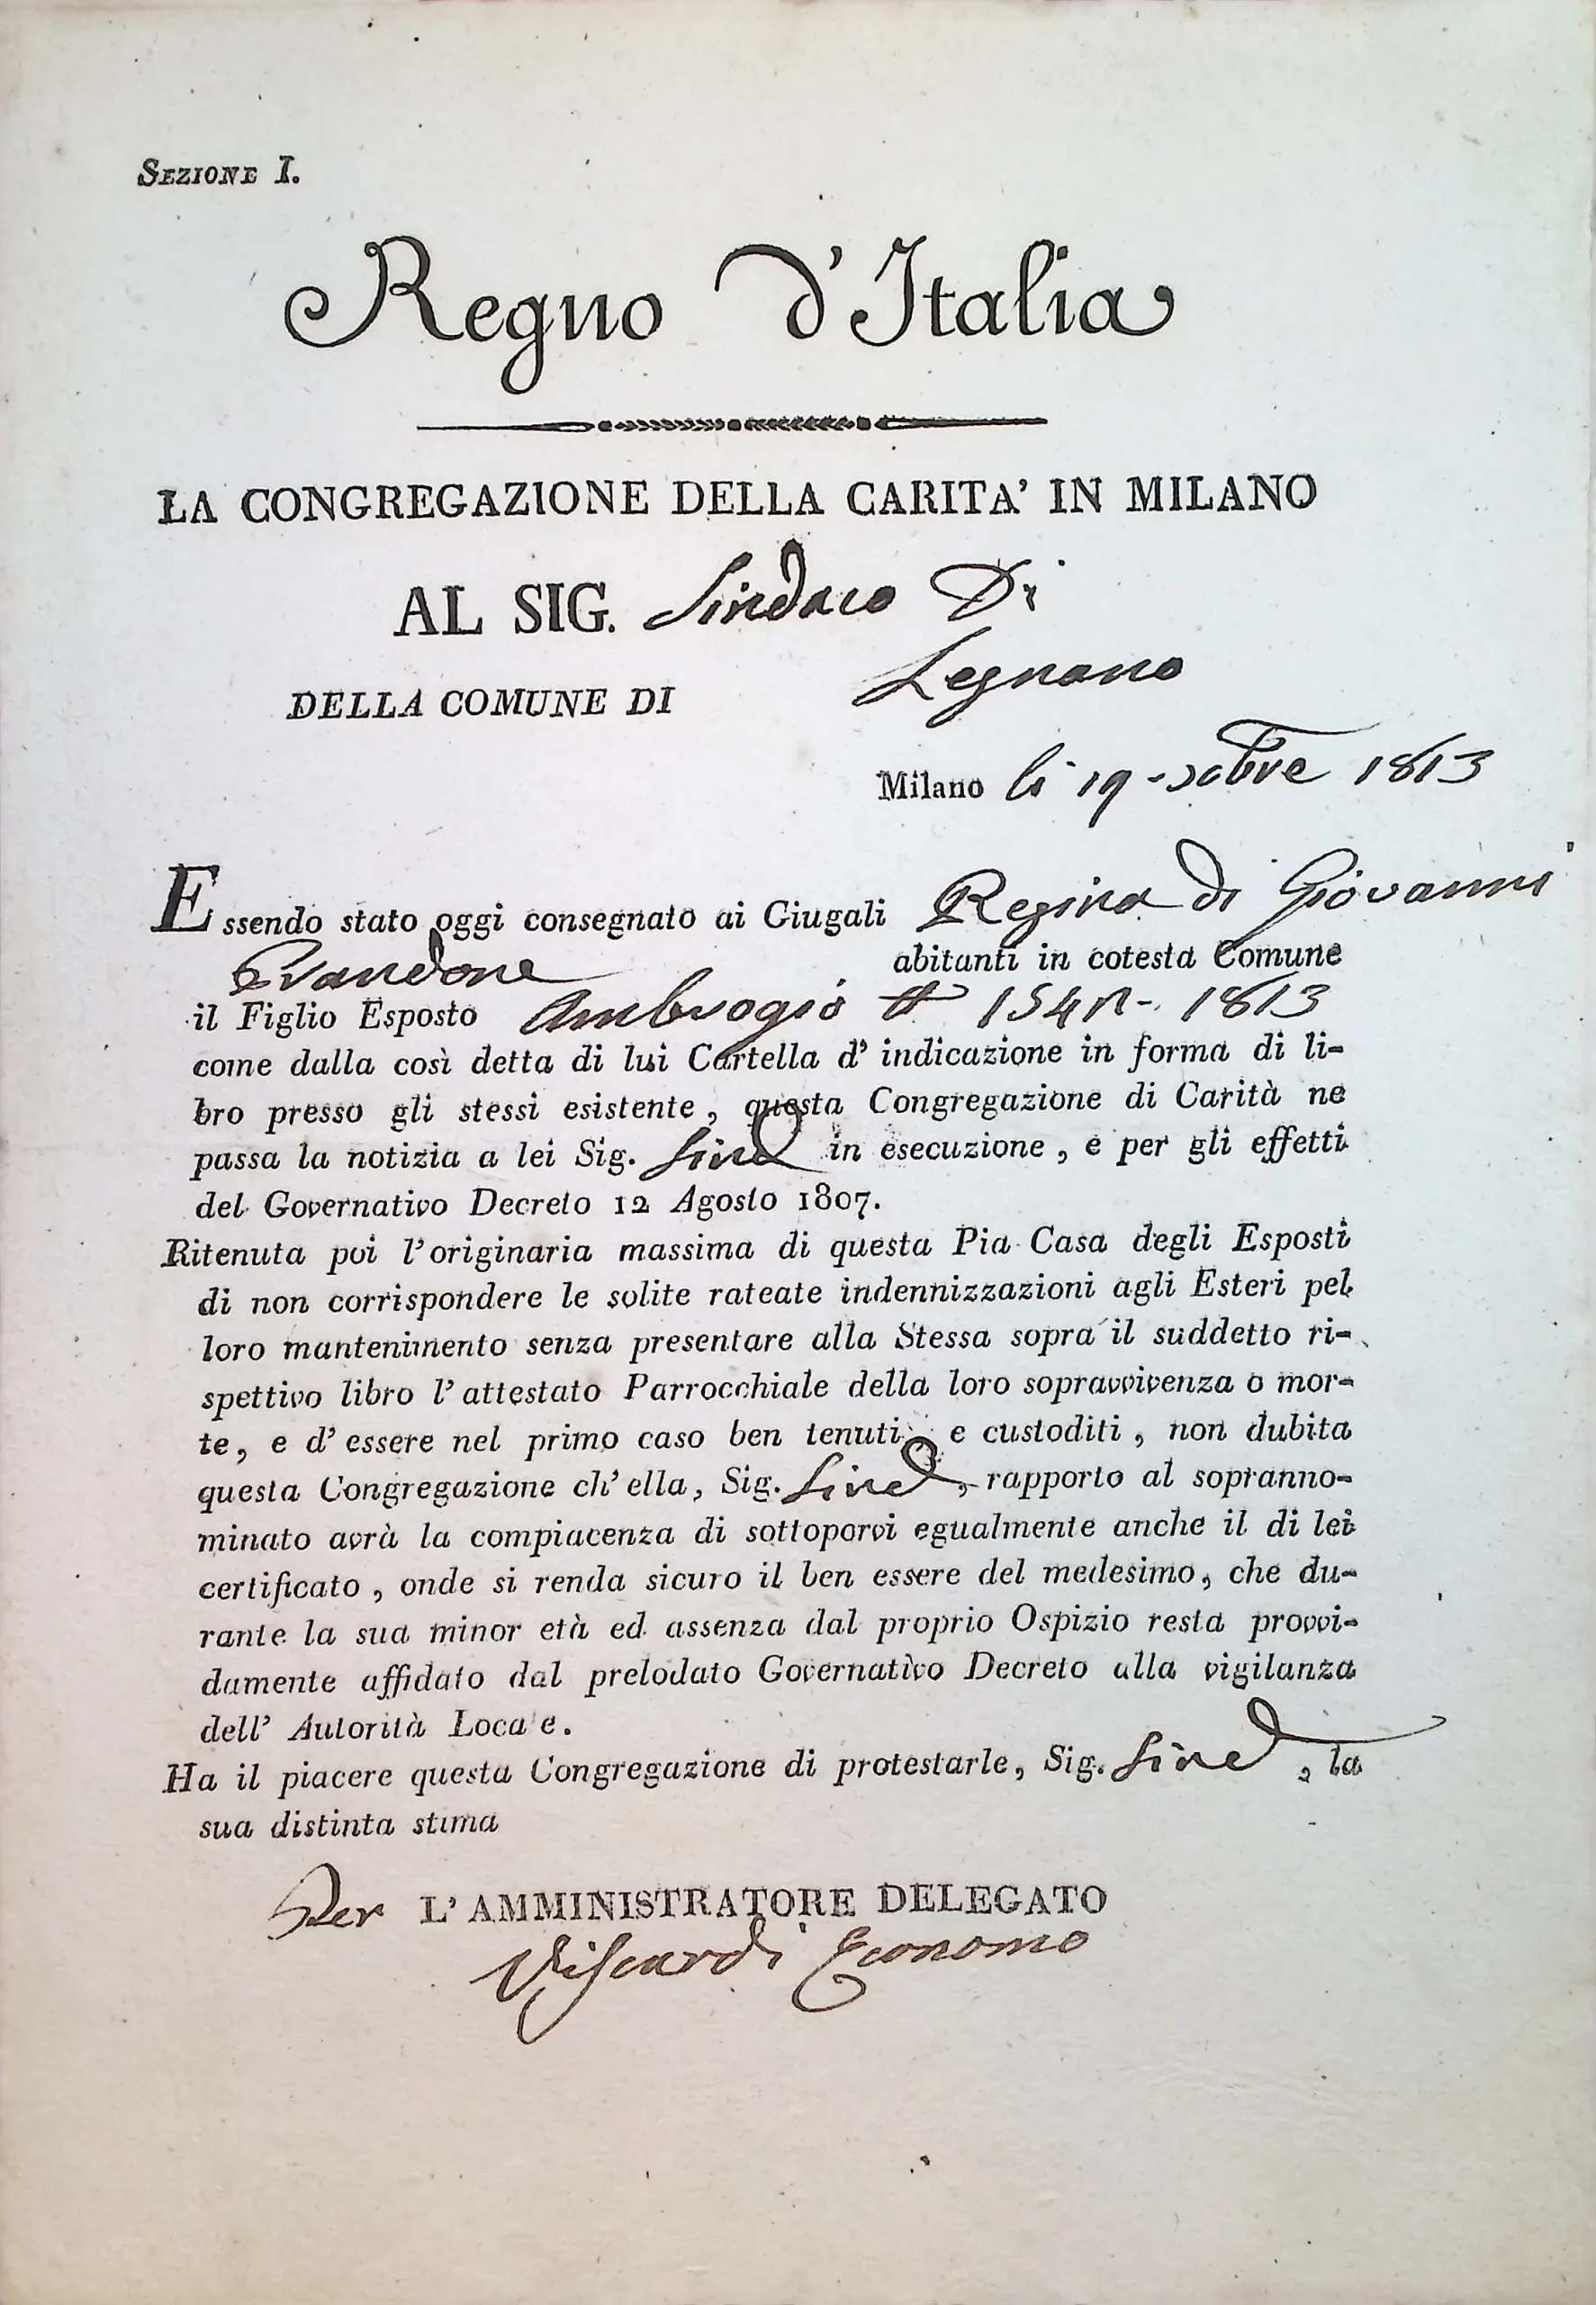 SEZIONE I.
Regno d'Italia
LA CONGREGAZIONE DELLA CARITA' IN MILANO
AL SIG. Sindaco Di
Legnano
DELLA COMUNE DI
Milano li 19 - 8bre 1813
Essendo stato oggi consegnato ai Giugali Regina di Giovanni
abitanti in cotesta Comune
il Figlio Esposto Ambrogio # 154 1813
come dalla così detta di lui Cartella d' indicazione in forma di li-
bro presso gli stessi esistente, questa Congregazione di Carità ne
passa la notizia a lei Sig. Sind in esecuzione, e per gli effetti
del Governativo Decreto 12 Agosto 1807.
Ritenuta poi l'originaria massima di questa Pia Casa degli Esposti
di non corrispondere le solite rateate indennizzazioni agli Esteri pel
loro mantenimento senza presentare alla Stessa sopra il suddetto ri-
spettivo libro l' attestato Parrocchiale della loro sopravvivenza o mor-
te, e d' essere nel primo caso ben tenuti, e custoditi, non dubita
questa Congregazione ch' ella, Sig. Sind, rapporto al sopranno-
minato avrà la compiacenza di sottoporvi egualmente anche il di lei
certificato, onde si renda sicuro il ben essere del medesimo, che du-
rante la sua minor età ed assenza dal proprio Ospizio resta provvi-
damente affidato dal prelodato Governativo Decreto alla vigilanza
dell' Autorità Locale.
Ha il piacere questa Congregazione di protestarle, Sig. Sind, la
sua distinta stima
Per L' AMMINISTRATORE DELEGATO
Viscardi Economo